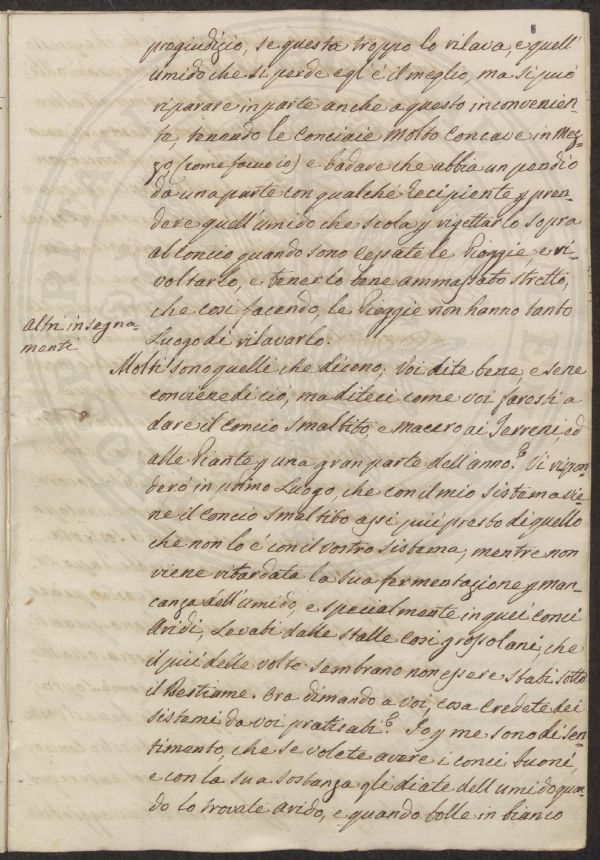 8
pregiudizio, se questa troppo lo rilava, e quell'
umido che si perde egl' è il meglio, ma si può
riparare in parte anche a questo inconvenien-
te, tenendo le Conciaie molto Concave in Mez-
zo (come faccio io) e badare che abbia un pendio
da una parte con qualche recipiente p pren-
dere quell' umido che scola, e rigettarlo sopra
al Concio quando sono cessate le Pioggie, e ri-
voltarlo, e tenerlo bene ammassato stretto,
che così facendo, le Pioggie non hanno tanto
Luogo di rilavarlo.
Altri insegna-
menti
Molti sono quelli che dicono; Voi dite bene, e se ne
conviene di ciò, ma diteci come voi faresti a
dare il Concio smaltito, e macero ai Terreni, ed
alle Piante p una gran parte dell' anno? Vi rispon-
derò in primo Luogo, che con il mio sistema vie-
ne il Concio smaltito assai più presto di quello
che non lo è con il vostro sistema, mentre non
viene ritardata la sua fermentazione p man-
canza dell' umido, e specialmente in quei Conci
Aridi, Levati dalle stalle così grossolani, che
il più delle volte sembrano non essere stati sotto
il Bestiame. Ora dimando a voi, cosa Credete dei
sistemi da voi praticati? Io p me sono di sen-
timento, che se volete avere i conci buoni,
e con la sua sostanza gli diate dell' umido quan-
do lo trovate arido, e quando bolle in bianco